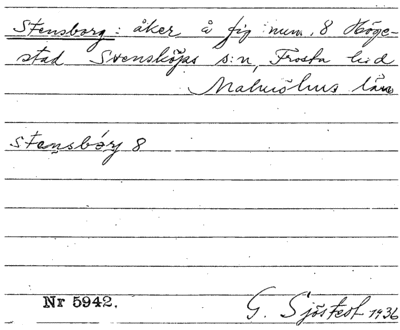 Stensborg: åker å fig num. 8 Höge-
stad Svensköps s:n, Frosta hd
Malmöhus län
stensbórj 8
Nr 5942.
G. Sjöstedt 1936